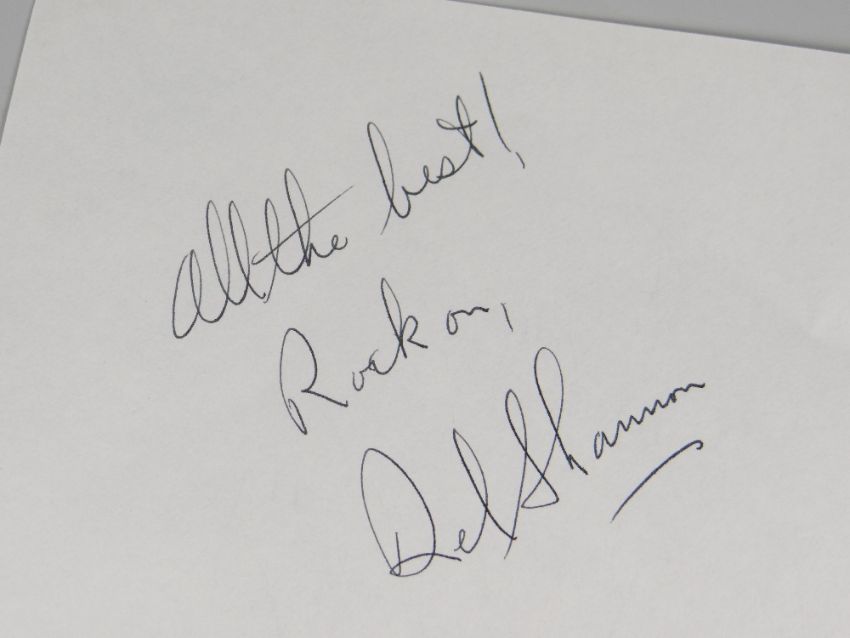 All the best!
Rock on,
Del Shannon